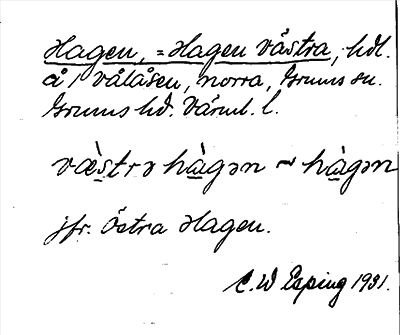 Hagen, = Hagen västra, hdl.
å / Vålåsen, norra, Grums sn.
Grums hd. Värml. l.
væ̀strə hàgən ~ hàgən
jfr. Östra Hagen.
C. W Esping 1931.